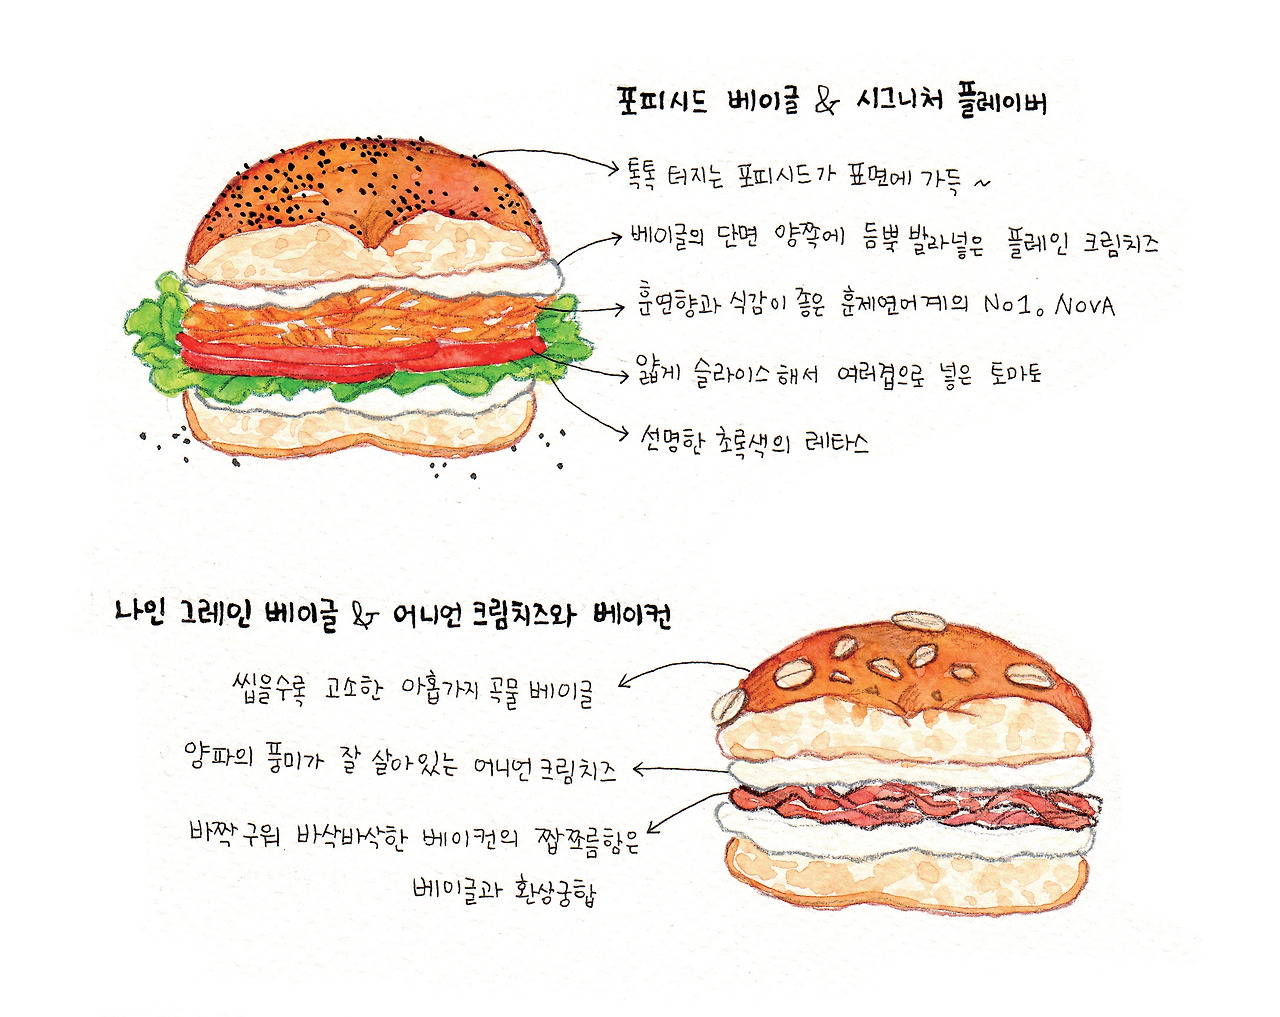 포피시드 베이글 & 시그니처 플레이버
톡톡 터지는 포피시드가 표면에 가득 ~
베이글의 단면 양쪽에 듬뿍 발라넣은 플레인 크림치즈
훈연향과 식감이 좋은 훈제연어계의 No1. NOVA
얇게 슬라이스해서 여러겹으로 넣은 토마토
선명한 초록색의 레타스
나인 그레인 베이글 & 어니언 크림치즈와 베이컨
씹을수록 고소한 아홉가지 곡물 베이글
양파의 풍미가 잘 살아있는 어니언 크림치즈
바짝 구워 바삭바삭한 베이컨의 짭쪼름함은
베이글과 환상궁합